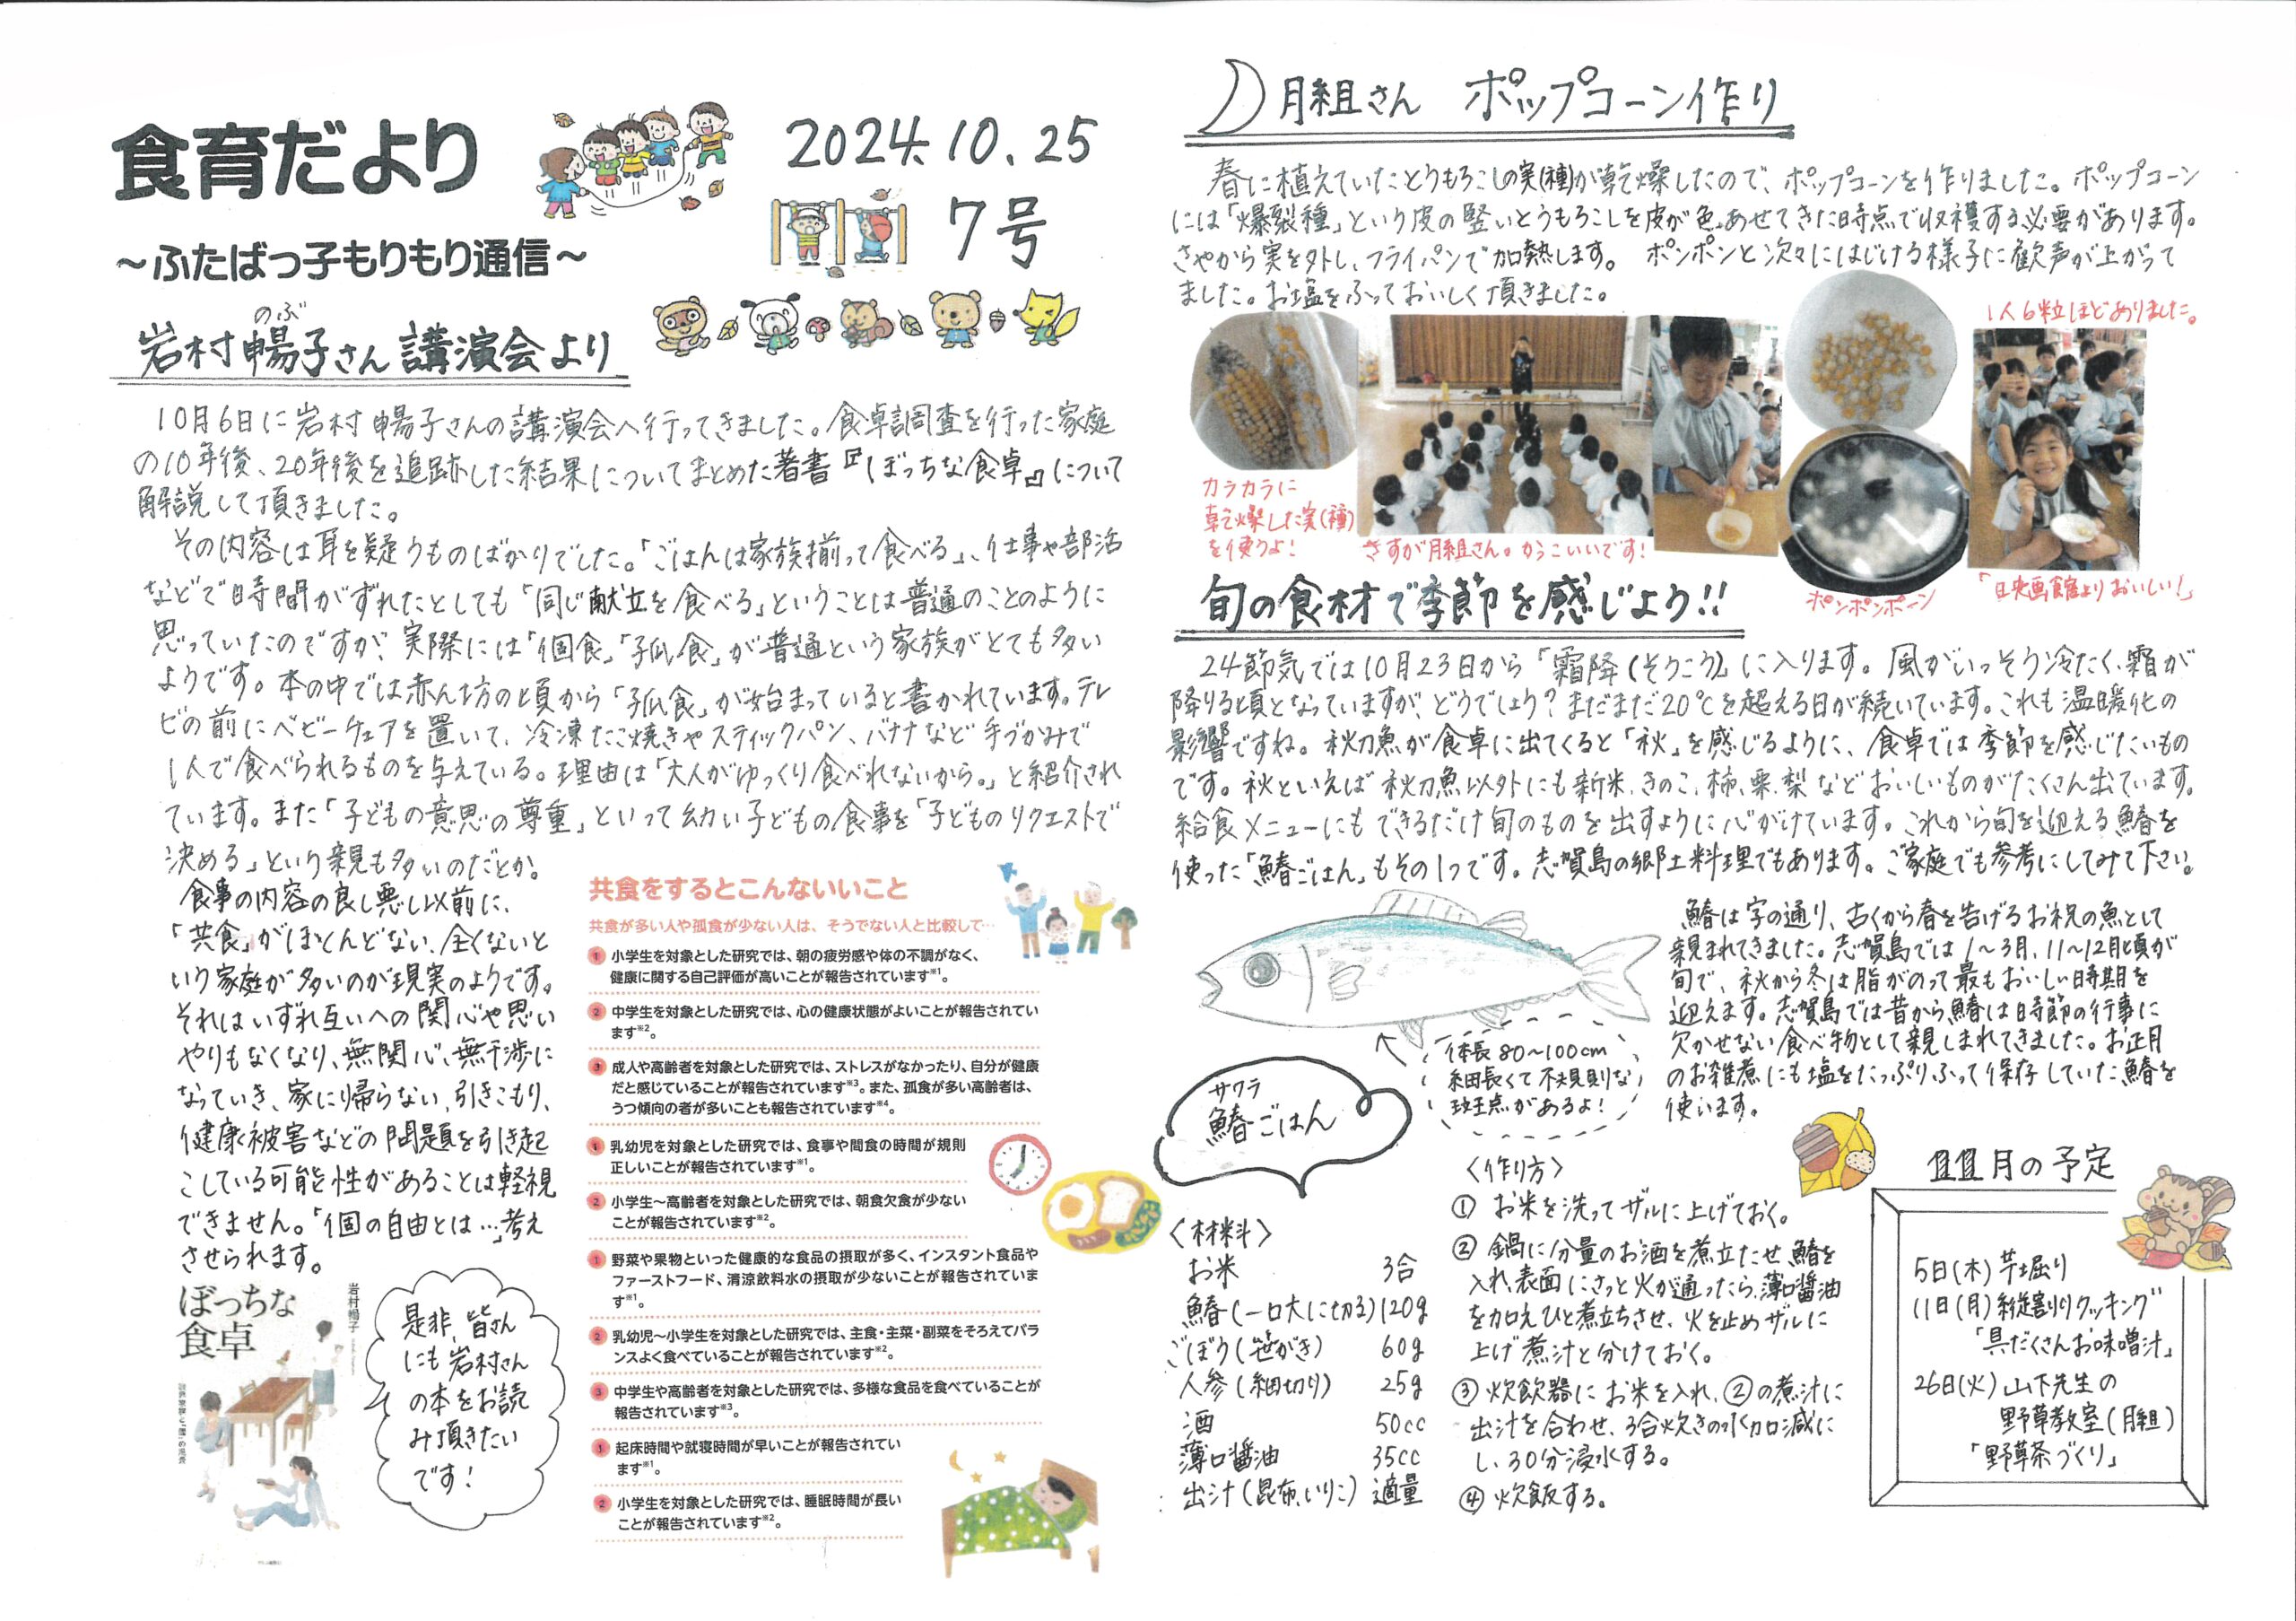 食育だより
2024.10.25
7号
～ふたばっ子もりもり通信～
のぶ
岩村暢子さん講演会より
10月6日に岩村暢子さんの講演会へ行ってきました。食卓調査を行った家庭
の10年後、20年後を追跡した結果についてまとめた著書『ぼっちな食卓』について
解説して頂きました。
その内容は耳を疑うものばかりでした。「ごはんは家族揃って食べる」、仕事や部活
などで時間がずれたとしても「同じ献立を食べる」ということは普通のことのように
思っていたのですが、実際には「個食」「孤食」が普通という家族がとても多い
ようです。本の中では赤ん坊の頃から「孤食」が始まっていると書かれています。テレ
ビの前にベビーチェアを置いて、冷凍たこ焼きやスティックパン、バナナなど手づかみで
1人で食べられるものを与えている。理由は「大人がゆっくり食べれないから。」と紹介され
ています。また「子どもの意思の尊重」といって幼い子どもの食事を「子どものリクエストで
決める」という親も多いのだとか。
食事の内容の良し悪し以前に、
「共食」がほとんどない、全くないと
いう家庭が多いのが現実のようです。
それはいずれ互いへの関心や思い
やりもなくなり、無関心、無干渉に
なっていき、家に帰らない、引きこもり、
健康被害などの問題を引き起
こしている可能性があることは軽視
できません。「個の自由とは…」考え
させられます。
ぼっちな
食卓
岩村暢子
是非、皆さん
にも岩村さん
の本をお読
み頂きたい
です！
共食をするとこんないいこと
共食が多い人や孤食が少ない人は、そうでない人と比較して…
1 小学生を対象とした研究では、朝の疲労感や体の不調がなく、
健康に関する自己評価が高いことが報告されています※1。
2 中学生を対象とした研究では、心の健康状態がよいことが報告されてい
ます※2。
3 成人や高齢者を対象とした研究では、ストレスがなかったり、自分が健康
だと感じていることが報告されています※3。また、孤食が多い高齢者は、
うつ傾向の者が多いことも報告されています※4。
1 乳幼児を対象とした研究では、食事や間食の時間が規則
正しいことが報告されています※1。
2 小学生～高齢者を対象とした研究では、朝食欠食が少ない
ことが報告されています※2。
1 野菜や果物といった健康的な食品の摂取が多く、インスタント食品や
ファーストフード、清涼飲料水の摂取が少ないことが報告されていま
す※1。
2 乳幼児～小学生を対象とした研究では、主食・主菜・副菜をそろえてバラ
ンスよく食べていることが報告されています※2。
3 中学生や高齢者を対象とした研究では、多様な食品を食べていることが
報告されています※3。
1 起床時間や就寝時間が早いことが報告されてい
ます※1。
2 小学生を対象とした研究では、睡眠時間が長い
ことが報告されています※2。
月組さん ポップコーン作り
春に植えていたとうもろこしの実(種)が乾燥したので、ポップコーンを作りました。ポップコーン
には「爆裂種」という皮の堅いとうもろこしを皮が色あせてきた時点で収穫する必要があります。
さやから実を外し、フライパンで加熱します。 ポンポンと次々にはじける様子に歓声が上がって
ました。お塩をふっておいしく頂きました。
1人6粒ほどありました。
カラカラに
乾燥した実(種)
を使うよ！
さすが月組さん。かっこいいです！
ポンポンポーン
「映画館よりおいしい！」
旬の食材で季節を感じよう！！
24節気では10月23日から「霜降(そうこう)」に入ります。風がいっそう冷たく、霜が
降りる頃となっていますが、どうでしょう？まだまだ20℃を超える日が続いています。これも温暖化の
影響ですね。秋刀魚が食卓に出てくると「秋」を感じるように、食卓では季節を感じたいもの
です。秋といえば秋刀魚以外にも新米、きのこ、柿、栗、梨などおいしいものがたくさん出ています。
給食メニューにもできるだけ旬のものを出すように心がけています。これから旬を迎える鰆を
使った「鰆ごはん」もその1つです。志賀島の郷土料理でもあります。ご家庭でも参考にしてみて下さい。
鰆は字の通り、古くから春を告げるお祝の魚として
親まれてきました。志賀島では1～3月、11～12月頃が
旬で、秋から冬は脂がのって最もおいしい時期を
迎えます。志賀島では昔から鰆は時節の行事に
欠かせない食べ物として親しまれてきました。お正月
のお雑煮にも塩をたっぷりふって保存していた鰆を
使います。
体長80～100cm
細長くて不規則な
斑点があるよ！
サワラ
鰆ごはん
〈材料〉
お米 3合
鰆(一口大に切る) 120g
ごぼう(笹がき) 60g
人参(細切り) 25g
酒 50cc
薄口醤油 35cc
出汁(昆布、いりこ) 適量
〈作り方〉
① お米を洗ってザルに上げておく。
② 鍋に分量のお酒を煮立たせ、鰆を
入れ、表面にさっと火が通ったら、薄口醤油
を加えひと煮立ちさせ、火を止めザルに
上げ煮汁と分けておく。
③ 炊飯器にお米を入れ、②の煮汁に
出汁を合わせ、3合炊きの水加減に
し、30分浸水する。
④ 炊飯する。
11月の予定
5日(木) 芋堀り
11日(月) 縦割りクッキング
「具だくさんお味噌汁」
26日(火) 山下先生の
野草教室(月組)
「野草茶づくり」